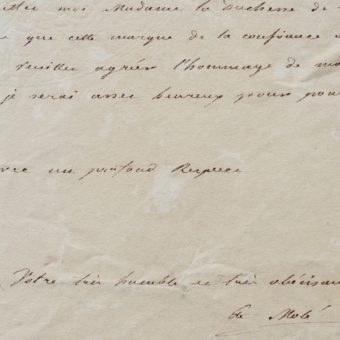 mettre moi Madame la Duchesse de
que cette marque de la confiance
veuillez agréer l'hommage de mo
je serai assez heureux pour pou
avec un profond Respect
Votre très humble et très obéissan
Molé